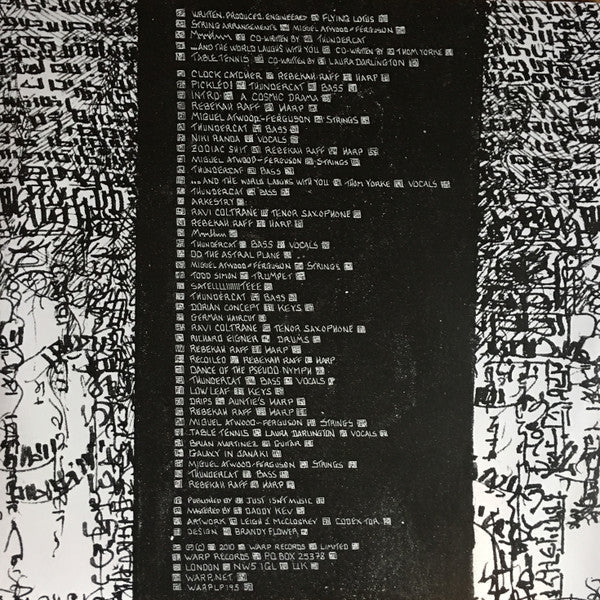 WRITTEN, PRODUCED, ENGINEERED FLYING LOTUS
STRING ARRANGEMENTS MIGUEL ATWOOD-FERGUSON
MmmHmm CO-WRITTEN BY THUNDERCAT
...AND THE WORLD LAUGHS WITH YOU CO-WRITTEN BY THOM YORKE
TABLE TENNIS CO-WRITTEN BY LAURA DARLINGTON
CLOCK CATCHER REBEKAH RAFF HARP
PICKLED! THUNDERCAT BASS
INTRO A COSMIC DRAMA
REBEKAH RAFF HARP
MIGUEL ATWOOD-FERGUSON STRINGS
THUNDERCAT BASS
NIKI RANDA VOCALS
ZODIAC SHIT REBEKAH RAFF HARP
MIGUEL ATWOOD-FERGUSON STRINGS
THUNDERCAT BASS
...AND THE WORLD LAUGHS WITH YOU THOM YORKE VOCALS
THUNDERCAT BASS
ARKESTRY
RAVI COLTRANE TENOR SAXOPHONE
REBEKAH RAFF HARP
MmmHmm
THUNDERCAT BASS VOCALS
DO THE ASTRAL PLANE
MIGUEL ATWOOD-FERGUSON STRINGS
TODD SIMON TRUMPET
THUNDERCAT BASS
DORIAN CONCEPT KEYS
GERMAN HAIRCUT
RAVI COLTRANE TENOR SAXOPHONE
RICHARD EIGNER DRUMS
REBEKAH RAFF HARP
RECOILED REBEKAH RAFF HARP
DANCE OF THE PSEUDO NYMPH
THUNDERCAT BASS VOCALS
LOW LEAF KEYS
DRIPS AUNTIE'S HARP
REBEKAH RAFF HARP
MIGUEL ATWOOD-FERGUSON STRINGS
TABLE TENNIS LAURA DARLINGTON VOCALS
BRIAN MARTINEZ GUITAR
GALAXY IN JANAKI
MIGUEL ATWOOD-FERGUSON STRINGS
THUNDERCAT BASS
REBEKAH RAFF HARP
PUBLISHED BY JUST ISN'T MUSIC
MASTERED BY DADDY KEV
ARTWORK LEIGH J MCCLOSKEY CODEX TOR
DESIGN BRANDY FLOWER
℗ © 2010 WARP RECORDS LIMITED
WARP RECORDS PO BOX 25378
LONDON NW5 1QL UK
WARP.NET
WARPLP195